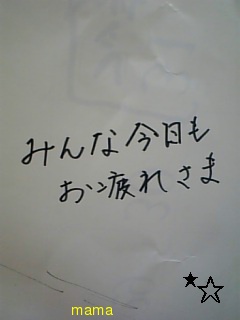 みんな今日も
お疲れさま
mama